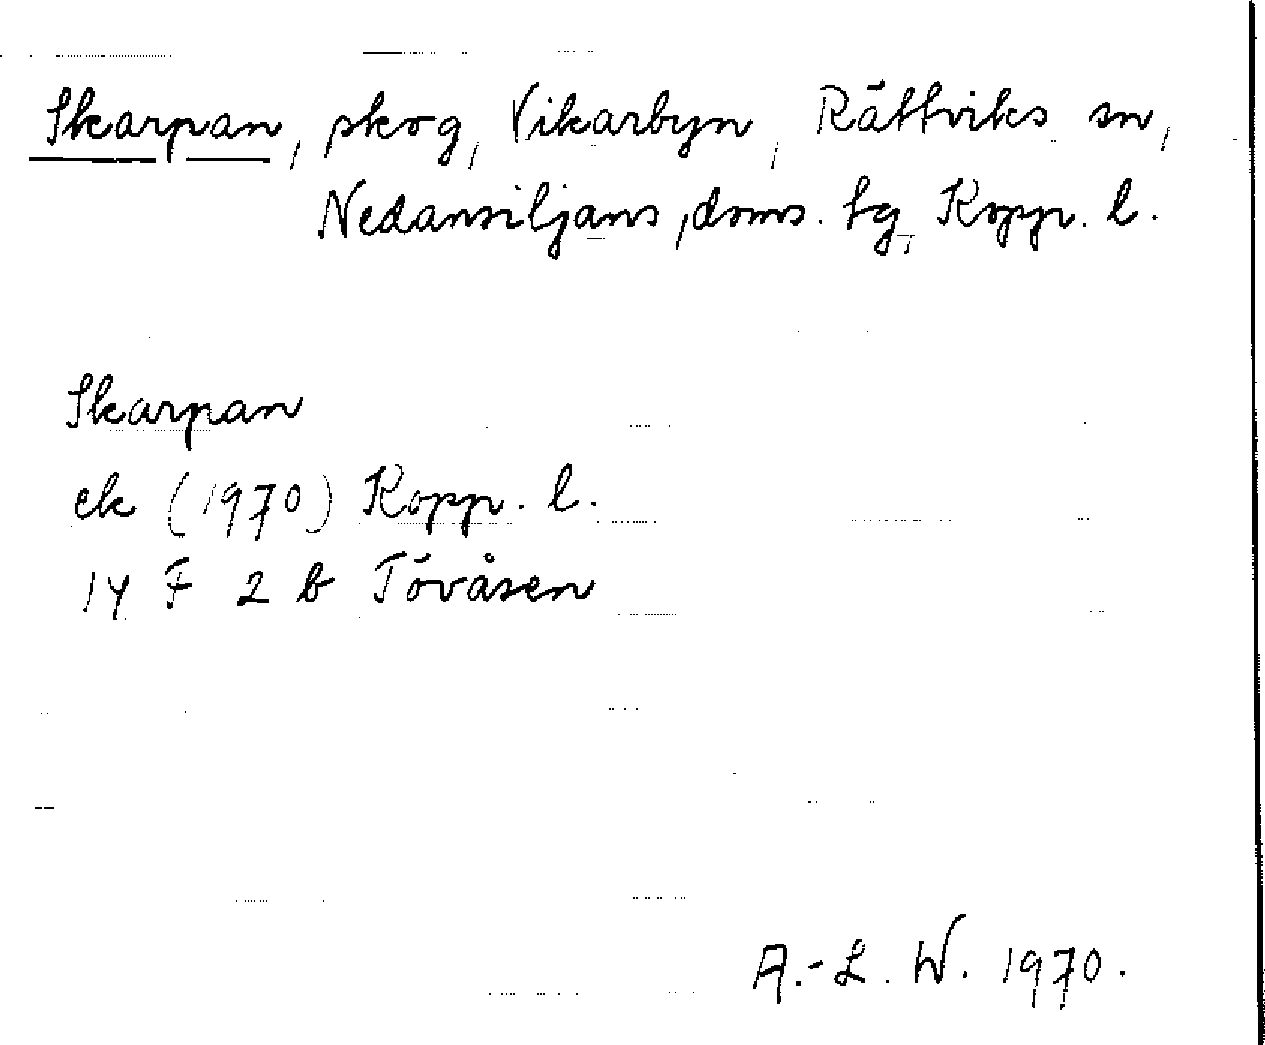 Skarpan, skog, Vikarbyn, Rättviks sn,
Nedansiljans, doms. tg, Kopp. l.
Skarpan
ek (1970) Kopp. l.
14 F 2 b Tövåsen
A.-L. W. 1970.